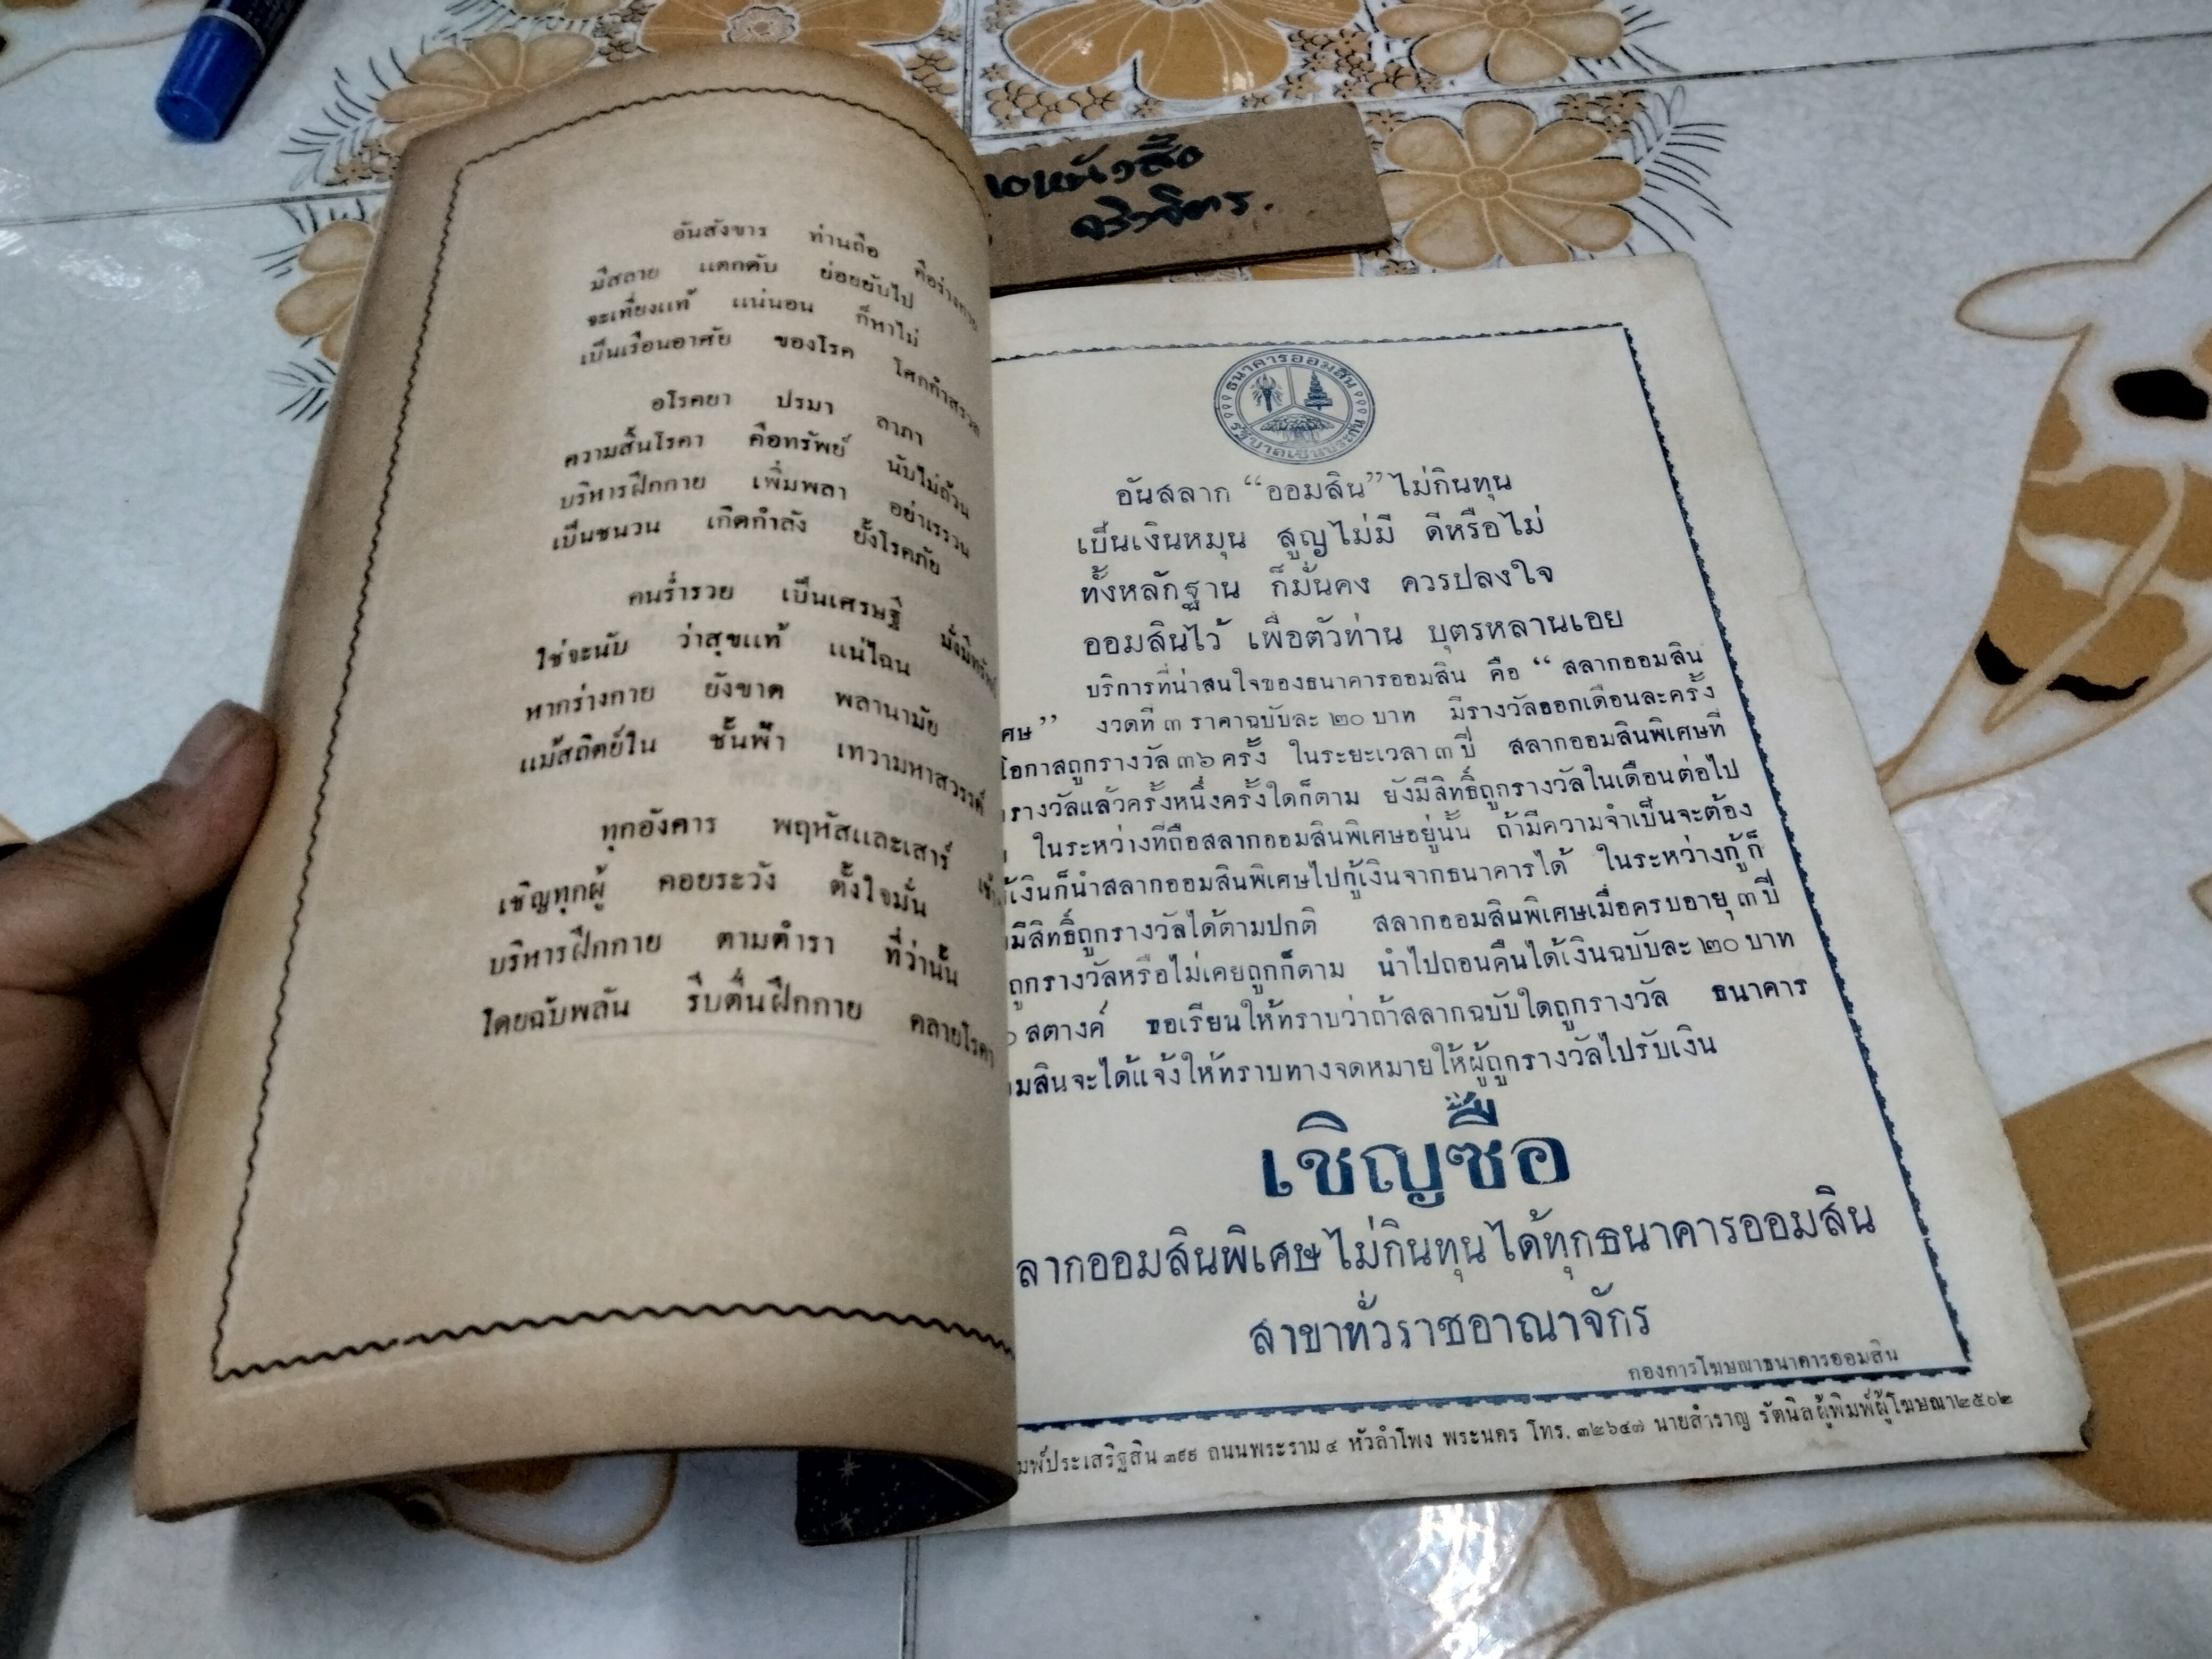 อันสังขาร ท่านถือ คือร่างกาย
มีสลาย แตกดับ ย่อยยับไป
จะเที่ยงแท้ แน่นอน ก็หาไม่
เป็นเรือนอาศัย ของโรค โศกกำสรวล
อโรคยา ปรมา ลาภา
ความสิ้นโรคา คือทรัพย์ นับไม่ถ้วน
บริหารฝึกกาย เพิ่มพลา อย่าเรรวน
เป็นชนวน เกิดกำลัง ยั้งโรคภัย
คนร่ำรวย เป็นเศรษฐี มั่งมีทรัพย์
ใช่จะนับ ว่าสุขแท้ แน่ไฉน
หากร่างกาย ยังขาด พลานามัย
แม้สถิตย์ใน ชั้นฟ้า เทวามหาสวรรค์
ทุกอังคาร พฤหัสและเสาร์
เชิญทุกผู้ คอยระวัง ตั้งใจมั่น
บริหารฝึกกาย ตามตำรา ที่ว่านั้น
โดยฉับพลัน รีบตื่นฝึกกาย คลายโรคา
ธนาคารออมสิน
รัฐบาลเป็นประกัน
อันสลาก “ออมสิน” ไม่กินทุน
เป็นเงินหมุน สูญไม่มี ดีหรือไม่
ทั้งหลักฐาน ก็มั่นคง ควรปลงใจ
ออมสินไว้ เพื่อตัวท่าน บุตรหลานเอย
บริการที่น่าสนใจของธนาคารออมสิน คือ “ สลากออมสิน
เศษ” งวดที่ ๓ ราคาฉบับละ ๒๐ บาท มีรางวัลออกเดือนละครั้ง
โอกาสถูกรางวัล ๓๖ ครั้ง ในระยะเวลา ๓ ปี สลากออมสินพิเศษที่
รางวัลแล้วครั้งหนึ่งครั้งใดก็ตาม ยังมีสิทธิ์ถูกรางวัลในเดือนต่อไป
ในระหว่างที่ถือสลากออมสินพิเศษอยู่นั้น ถ้ามีความจำเป็นจะต้อง
เงินก็นำสลากออมสินพิเศษไปกู้เงินจากธนาคารได้ ในระหว่างกู้ก็
มีสิทธิ์ถูกรางวัลได้ตามปกติ สลากออมสินพิเศษเมื่อครบอายุ ๓ ปี
ถูกรางวัลหรือไม่เคยถูกก็ตาม นำไปถอนคืนได้เงินฉบับละ ๒๐ บาท
สตางค์ ขอเรียนให้ทราบว่าถ้าสลากฉบับใดถูกรางวัล ธนาคาร
อมสินจะได้แจ้งให้ทราบทางจดหมายให้ผู้ถูกรางวัลไปรับเงิน
เชิญซื้อ
ลากออมสินพิเศษไม่กินทุนได้ทุกธนาคารออมสิน
สาขาทั่วราชอาณาจักร
กองการโฆษณาธนาคารออมสิน
มพ์ประเสริฐสิน ๓๙๕ ถนนพระราม ๔ หัวลำโพง พระนคร โทร. ๓๒๖๔๗ นายสำราญ รัตนิล ผู้พิมพ์ผู้โฆษณา ๒๕๐๒